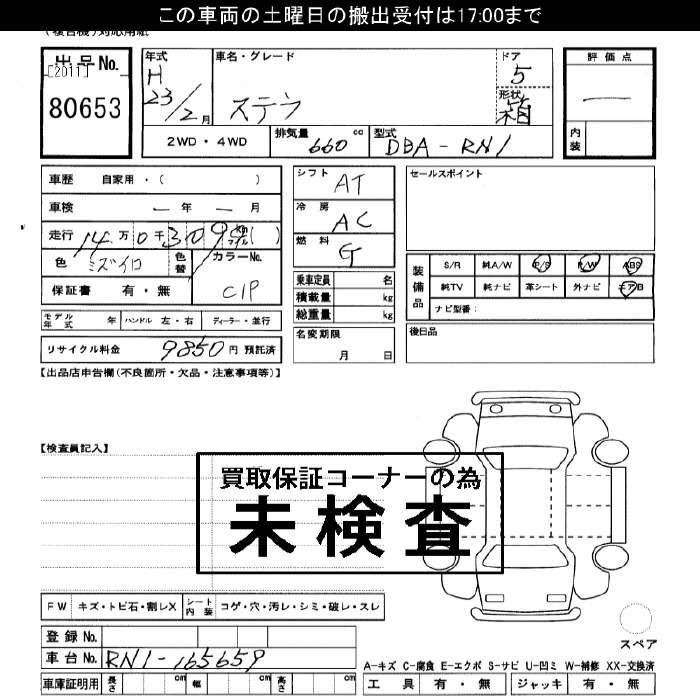 この車両の土曜日の搬出受付は17:00まで
出品No. [2011] 80653
年式 H 23/2月
車名・グレード ステラ
ドア 5
形状 箱
評価点 —
内装
2WD・4WD 排気量 660 cc 型式 DBA-RN1
車歴 自家用・( )
車検 — 年 — 月
走行 14万0千309 km マイル ( )
色 ミズイロ 色替 カラーNo. C1P
保証書 有・無
モデル年式 年 ハンドル 左・右 ディーラー・並行
リサイクル料金 9850円 預託済
シフト AT
冷房 AC
燃料 G
乗車定員 名
積載量 kg
総重量 kg
名変期限 月 日
セールスポイント
装備品 S/R 純A/W P/S P/W ABS
純TV 純ナビ 革シート 外ナビ エアB
ナビ型番:
後日品
【出品店申告欄(不良箇所・欠品・注意事項等)】
【検査員記入】
買取保証コーナーの為
未検査
FW キズ・トビ石・割レX シート内装 コゲ・穴・汚レ・シミ・破レ・スレ
登録No.
車台No. RN1-165659
車庫証明用 長さ cm 幅 cm 高さ cm
スペア
A-キズ C-腐食 E-エクボ S-サビ U-凹ミ W-補修 XX-交換済
工具 有・無 ジャッキ 有・無